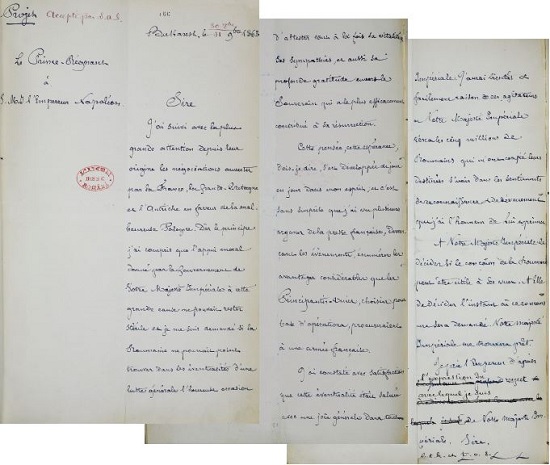 Projet
Le Prince-Régnant
à
S. M. l'Empereur Napoléon
Bucharest, le 9bre 1863
Sire
J'ai suivi avec la plus
grande attention depuis leur
origine les négociations ouvertes
par la France, la Grande-Bretagne
et l'Autriche en faveur de la mal-
heureuse Pologne. Dès le principe
j'ai compris que l'appui moral
donné par le Gouvernement de
Votre Majesté Impériale à cette
grande cause ne pouvait rester
stérile et je me suis demandé si la
Roumanie ne pouvait point
trouver dans les éventualités d'une
lutte générale l'heureuse occasion
d'attester tout à la fois
ses sympathies et aussi sa
profonde gratitude envers le
Souverain qui a le plus efficacement
contribué à sa résurrection.
Cette pensée, cette espérance,
dois-je dire, s'est développée de jour
en jour dans mon esprit, et c'est
sans surprise que j'ai vu plusieurs
organes de la presse française,
les événements, énumérer les
avantages considérables que les
Principautés-Unies, choisies pour
base d'opérations, procureraient
à une armée française.
J'ai constaté avec satisfaction
que cette éventualité était saluée
avec une joie générale dans
Impériale. J'aurai
facilement raison de ces agitateurs
et Votre Majesté Impériale
verra les cinq millions de
Roumains, qui m'ont confié leurs
destinées s'unir dans les sentiments
de reconnaissance et de dévouement
que j'ai l'honneur de Lui exprimer.
A Votre Majesté Impériale de
décider si le concours de la Roumanie
peut être utile à ses vues et à Elle
de décider l'instant où ce concours
me sera demandé. Votre Majesté
Impériale me trouvera prêt.
de Votre Majesté Im-
périale, Sire,